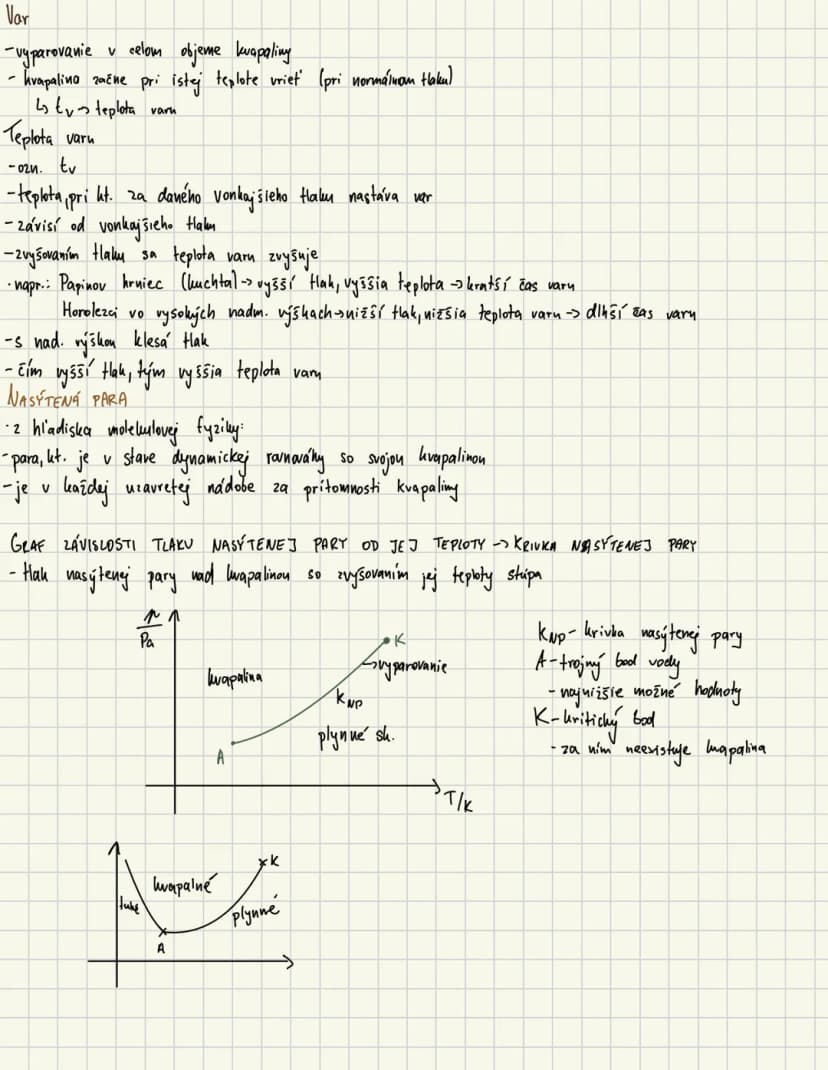 Var
-vyparovanie v celom objeme kvapaliny
- kvapalina začne pri istej teplote vrieť (pri normálnom tlaku)
↳ tv → teplota varu
Teplota varu
-ozn. tv
-teplota, pri kt. za daného vonkajšieho tlaku nastáva var
-závisí od vonkajšieho tlaku
-zvyšovaním tlaku sa teplota varu zvyšuje
·napr.: Papinov hrniec (kuchta) → vyšší tlak, vyššia teplota → kratší čas varu
Horolezci vo vysokých nadm. výškach → nižší tlak, nižšia teplota varu → dlhší čas varu
-s nad. výškou klesá tlak
- čím vyšší tlak, tým vyššia teplota varu
NASÝTENÁ PARA
·z hľadiska molekulovej fyziky:
-para, kt. je v stave dynamickej rovnováhy so svojou kvapalinou
-je v každej uzavretej nádobe za prítomnosti kvapaliny
GRAF ZÁVISLOSTI TLAKU NASÝTENEJ PARY OD JEJ TEPLOTY → KRIVKA NASÝTENEJ PARY
- tlak nasýtenej pary nad kvapalinou so zvyšovaním jej teploty stúpa
p/Pa
K
→vyparovanie
kvapalina
kNP
plynné sk.
A
T/K
kNP- krivka nasýtenej pary
A-trojný bod vody
- najnižšie možné hodnoty
K-kritický bod
- za ním neexistuje kvapalina
K
kvapalné
tuhé
plynné
A